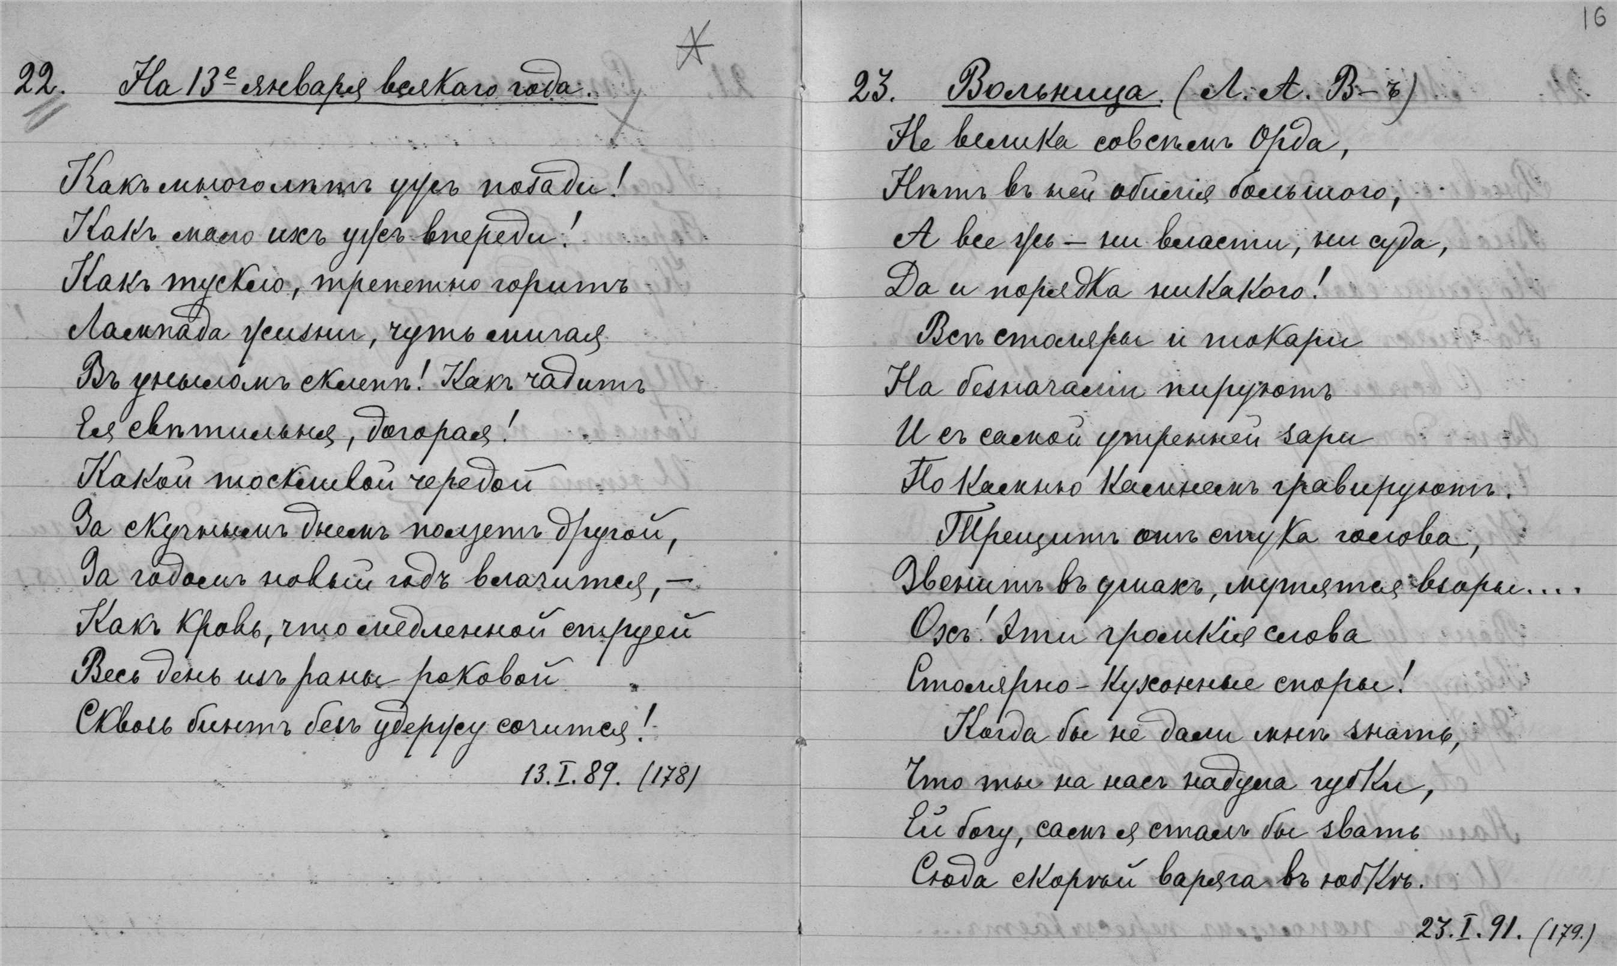 22. На 13е января всякаго года.
Какъ много лѣтъ ужъ позади!
Какъ мало ихъ ужъ впереди!
Какъ тускло, трепетно горитъ
Лампада жизни, чуть мигая
Въ уныломъ склепѣ! Какъ чадитъ
Ея свѣтильня, догорая!
Какой тоскливой чередой
За скучнымъ днемъ ползетъ другой,
За годомъ новый годъ влачится, —
Какъ кровь, что медленной струей
Весь день изъ раны роковой
Сквозь бинтъ безъ удержу сочится!
13.I.89. (178)
16
23. Вольница (Л. А. В–ъ)
Не велика совсѣмъ Орда,
Нѣтъ въ ней обилія большого,
А все жь — ни власти, ни суда,
Да и порядка никакого!
Всѣ столяры и токари
На безначаліи пируютъ
И съ самой утренней зари
По камню камнемъ гравируютъ.
Трещитъ отъ стука голова,
Звенитъ въ ушахъ, мутятся взоры....
Охъ! Эти громкія слова
Столярно-кухонные споры!
Когда бы не дали мнѣ знать,
Что ты на насъ надула губки,
Ей богу, самъ я сталъ бы звать
Сюда скорѣй варяга въ юбкѣ.
23.I.91. (179.)